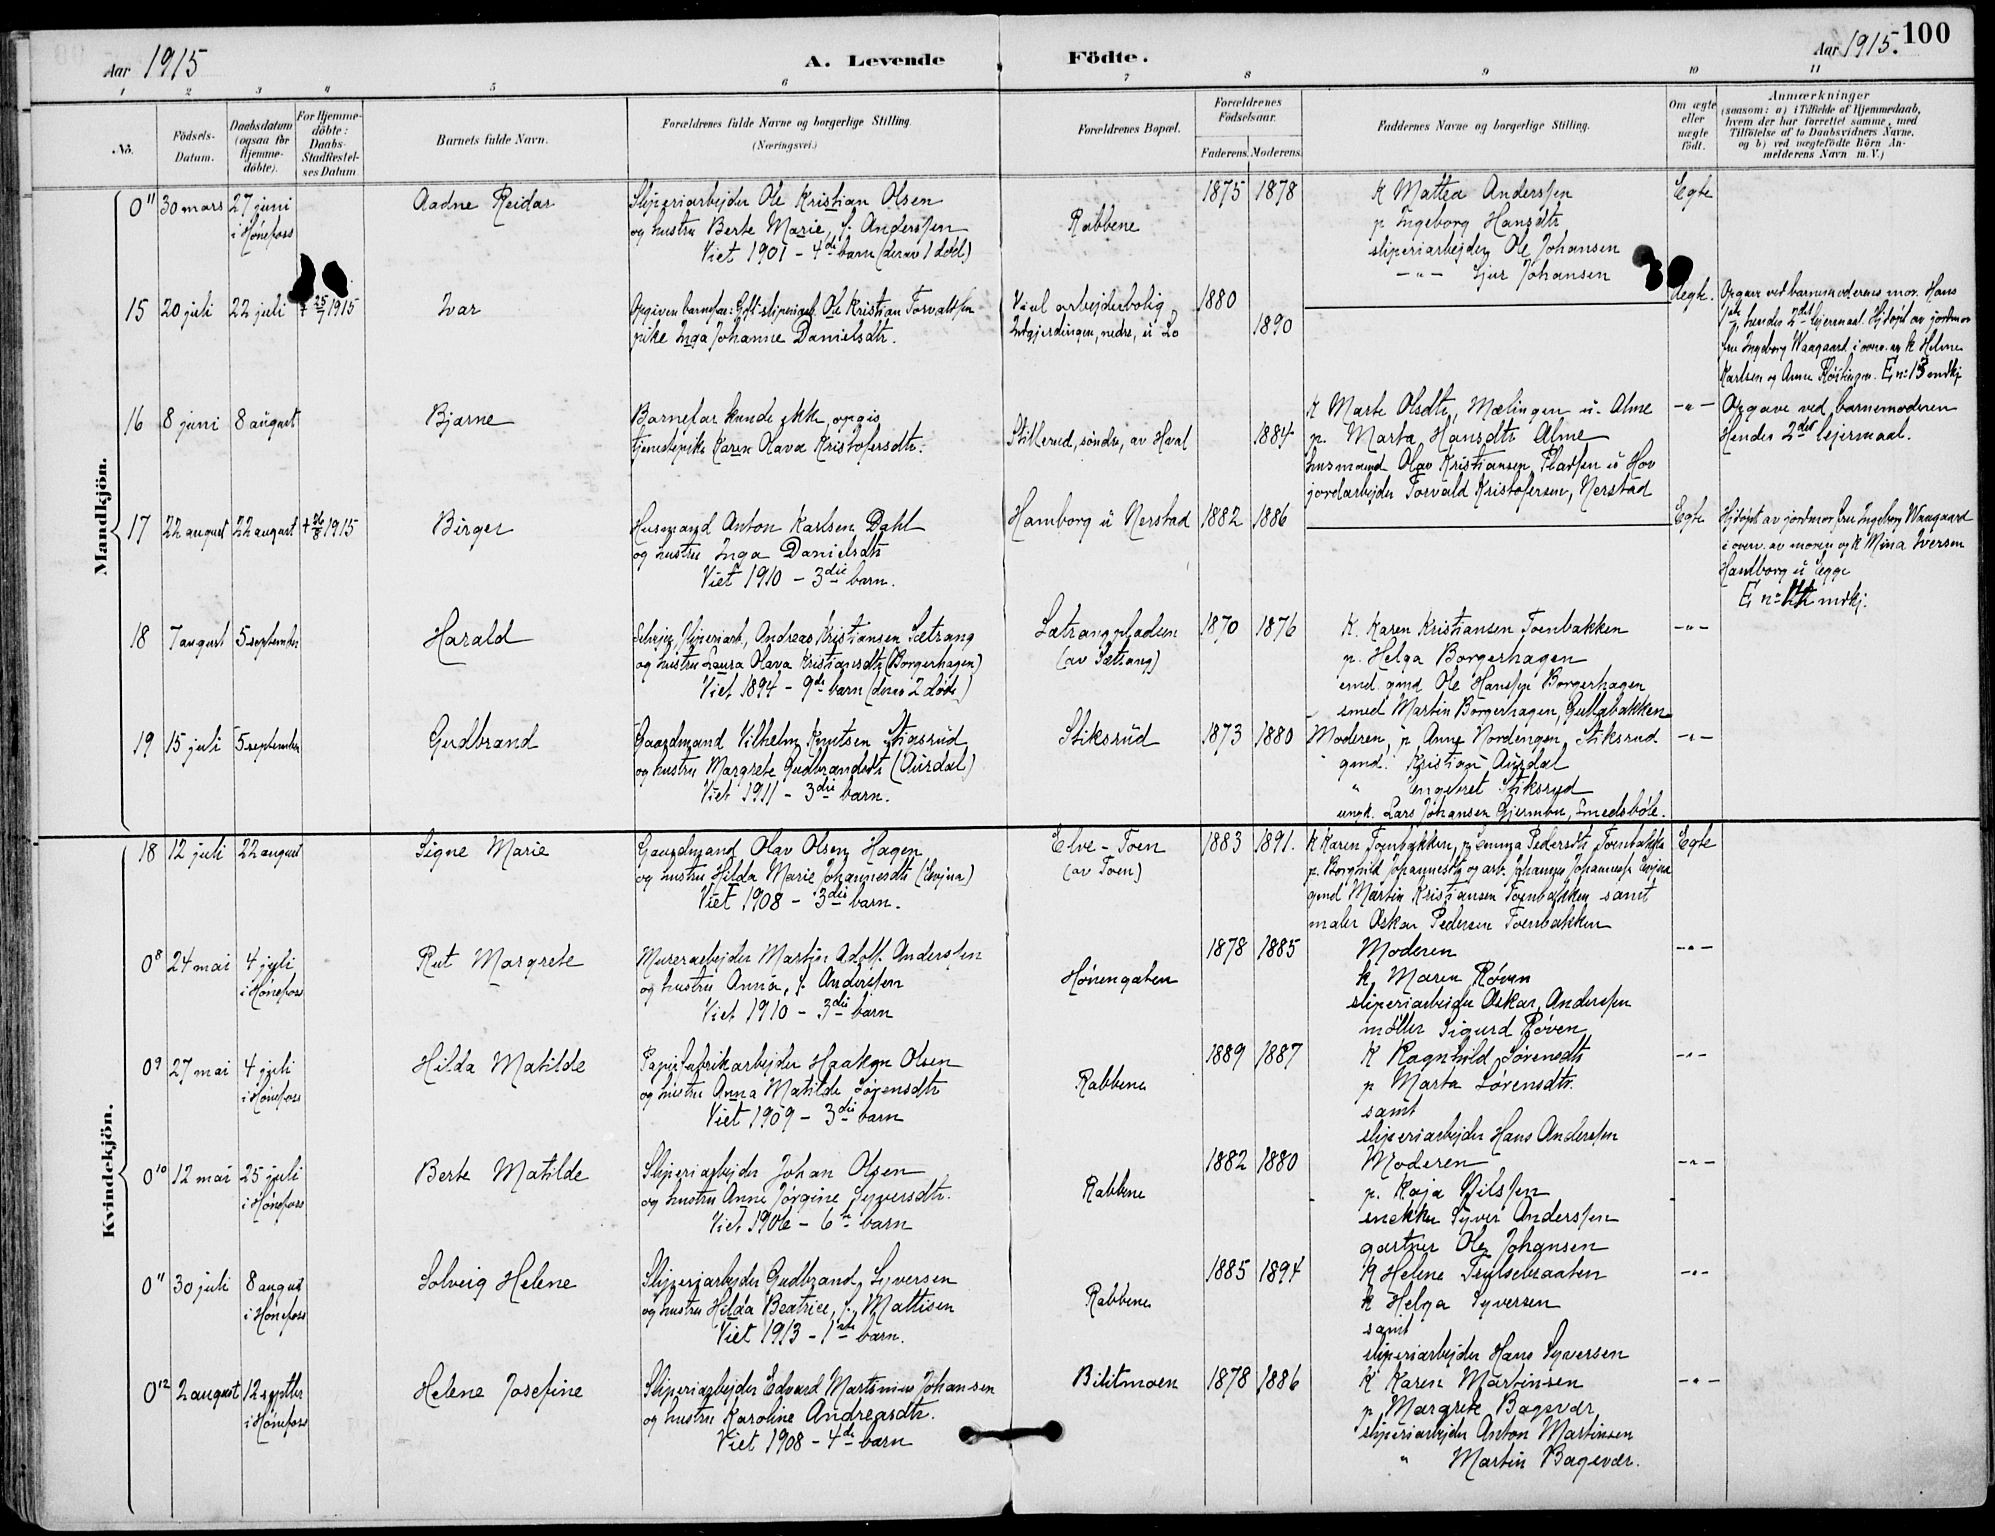 Aar 1915
A. Levende Födte.
Aar 1915. 100
1 2 3 4 5 6 7 8 9 10 11
No.
Födsels-Datum.
Daabsdatum (ogsaa for Hjemmedöbte).
For Hjemmedöbte: Daabs-Stadfæstelses Datum
Barnets fulde Navn.
Forældrenes fulde Navne og borgerlige Stilling. (Næringsvei.)
Forældrenes Bopæl.
Forældrenes Födselsaar.
Faderens. Moderens.
Faddernes Navne og borgerlige Stilling.
Om ægte eller uægte født.
Anmærkninger
(saasom: a) i Tilfælde af Hjemmedaab, hvem der har forrettet samme, med Tilföielse af to Daabsvidners Navne, og b) ved uægtefödte Börn Anmelderens Navn m. V.)
Mandkjön.
0" 30 mars 27 juni i Hönefoss
Aadne Reidar
Sliperiarbeider Ole Kristian Olsen
og hustru Berte Marie, f. Anderssen
Viet 1901 - 4de barn (derav 1 död)
Rabbene
1875 1878
K Mattea Anderssen
p Ingeborg Hansdtr
sliperiarbeider Ole Johansen
-"- Sjur Johansen
Egte
15 20 juli 22 juli † 25/7 1915
Ivar
Opgiven barnefar: Gift sliperiarb. Ole Kristian Torvaldsen
pike Inga Johanne Danielsdtr.
arbeiderbolig
nedre, u. Lo
1880
1890
Uegte.
Opgave ved barnemoderens mor. Hans
hendes 2det leiermaal. Hjdöpt av jordmor
fru Ingeborg Waagaard i overv. av k Helene
Karlsen og Anne E. n: 13 mdkj
16 8 juni 8 august
Bjarne
Barnefar kunde ikke opgis
Tjenestepike Karen Olava Kristofersdtr.
Stillerud, söndre, av Hval
1884
K Marte Olsdtr, Mælingen u. Alme
p. Marta Hansdtr Alme
husmand Olav Kristiansen, u Hov
jordarbejder Torvald Kristofersen, Nerstad
-"-
Opgave ved barnemoderen
Hendes 2det leiermaal.
17 22 august 22 august † 26/8 1915
Birger
Husmand Anton Karlsen Dahl
og hustru Inga Danielsdtr
Viet 1910 - 3die barn.
Hamborg u Nerstad
1882 1886
Egte
Hjdöpt av jordmor fru Ingeborg Waagaard
i overv. av moren og k Mina Iversen
Hamborg u Egge
E. n: 14 mdkj.
18 7 august 5 september
Harald
Selveier, sliperiarb. Andreas Kristiansen Sætrang
og hustru Laura Olava Kristiansdtr (Borgerhagen)
Viet 1894 - 9de barn (derav 2 döde)
Sætrangpladsen
(av Sætrang)
1870 1876
K. Karen Kristiansen Toenbakken
p. Helga Borgerhagen
emd. gmd Ole Hanssen Borgerhagen
smed Martin Borgerhagen, Gullabakken
-"-
19 15 juli 5 september
Gudbrand
Gaardmand Vilhelm Knutsen Stiksrud
og hustru Margrete Gudbrandsdtr (Aurdal)
Viet 1911 - 3die barn.
Stiksrud
1873 1880
Moderen, p. Anne Nordengen, Stiksrud
gmd. Kristian Aurdal
" Engebret Stiksrud
ungk. Lars Johansen Gjermbu, Smedsböle.
-"-
Kvindekjön.
18 12 juli 22 august
Signe Marie
Gaardmand Olav Olsen Hagen
og hustru Hilda Marie Johannesdtr (Evjua)
Viet 1908 - 3die barn.
Elve-Toen
(av Toen)
1883 1891.
K Karen Toenbakken, p. Emma Pedersdtr Toenbakken
p. Borghild Johannesdtr og arb. Johannes Johannessen Evjua
gmd Martin Kristiansen Toenbakken samt
maler Oskar Pedersen Toenbakken
Egte
0⁸ 24 mai 4 juli i Hönefoss
Rut Margrete
Murerarbeider Martin Adolf Anderssen
og hustru Anna, f. Anderssen
Viet 1910 - 3die barn
Hönengaten
1878 1885
Moderen
k. Maren Röven
sliperiarbeider Oskar Anderssen
möller Sigurd Röven
-"-
0⁹ 27 mai 4 juli i Hönefoss
Hilda Matilde
Papirfabrikarbejder Haakon Olsen
og hustru Anna Matilde Sörensdtr
Viet 1909 - 3die barn
Rabbene
1889 1887
K Ragnhild Sörensdtr
p Marta Sörensdtr.
samt
sliperiarbejder Hans Anderssen
-"-
0¹⁰ 12 mai 25 juli i Hönefoss
Berte Matilde
Sliperiarbejder Johan Olsen
og hustru Anne Jörgine Syversdtr.
Viet 1906 - 6te barn
Rabbene
1882 1880
Moderen
p. Kaja Nilssen
snekker Syver Anderssen
gartner Ole Johansen
-"-
0" 30 juli 8 august i Hönefoss
Solveig Helene
Sliperiarbejder Gudbrand Syversen
og hustru Hilda Beatrice, f. Mattisen
Viet 1913 - 1ste barn.
Rabbene
1885 1894
K Helene Trulsebraaten
k Helga Syversen
samt
sliperiarbejder Hans Syversen
-"-
0¹² 2 august 12 septbr i Hönefoss
Helene Josefine
Sliperiarbejder Edvard Martinius Johansen
og hustru Karoline Andreasdtr.
Viet 1908 - 4de barn
Bilitmoen
1878 1886
K Karen Martinsen
p Margrete Bagevær
sliperiarbejder Anton Martinsen
" Martin Bagevær.
-"-